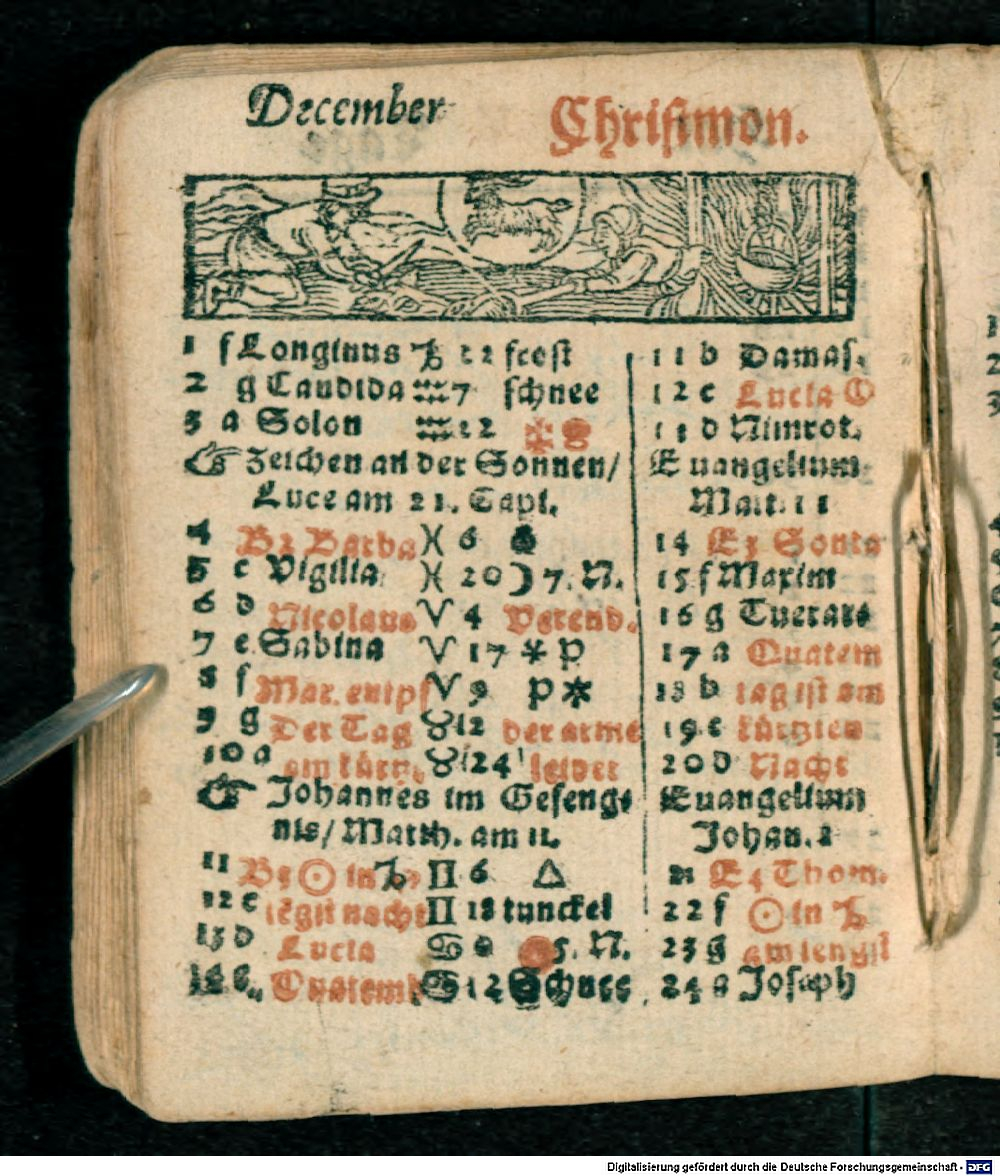 December Christmon.
1 f Longinus ♑ 22 frost
2 g Candida ♒ 7 schnee
3 a Solon ♒ 22
☞ Zeichen an der Sonnen/
Luce am 21. Capi.
4 B2 Barba ♓ 6
5 c Vigilia ♓ 20 ☽ 7. N.
6 d Nicolaus ♈ 4
7 e Sabina ♈ 17 ⚹ P
8 f Mar. entpf ♈ 9 P ⚹
9 g Der Tag ♉ 12 der arme
10 a am kürtz. ♉ 24 leidet
☞ Johannes im Gefeng-
nis/ Matth. am 11.
11 B3 ☉ in ♑ ♊ 6 △
12 c nacht ♊ 18 tunckel
13 d Lucia ♋ 0 5. N.
14 e Quatemb ♋ 12 Schnee
11 b Damas.
12 c Lucia
13 d Nimrot.
Euangelium
Matt. 11
14 E3
15 f Maxim
16 g
17 a Quatem
18 b tag ist am
19 c kürtzten
20 d Nacht
Euangelium
Johan. 1
21 E4 Thom.
22 f ☉ in ♑
23 g am lengst
24 a Joseph
Digitalisierung gefördert durch die Deutsche Forschungsgemeinschaft - DFG